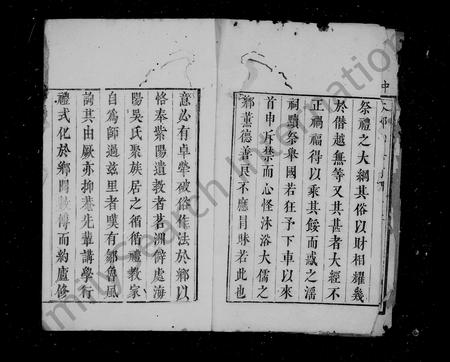 祭禮之大綱其俗以財相耀幾
於僭越無等又其甚者大經不
正禍福得以乘其餒而惑之淫
祠黷祭舉國若狂予下車以來
首申訴禁而心怪沐浴大儒之
鄉薰德善良不應冒昧若此也
意必有卓犖破俗作法於鄉以
恪奉紫陽遺教者茗洲僻處海
陽吳氏聚族居之循循禮教家
自為師過茲里者嘆有鄒魯風
詢其由厥亦抑菴先輩講學行
禮式化於鄉閭數傳而約廬修
FamilySearch International